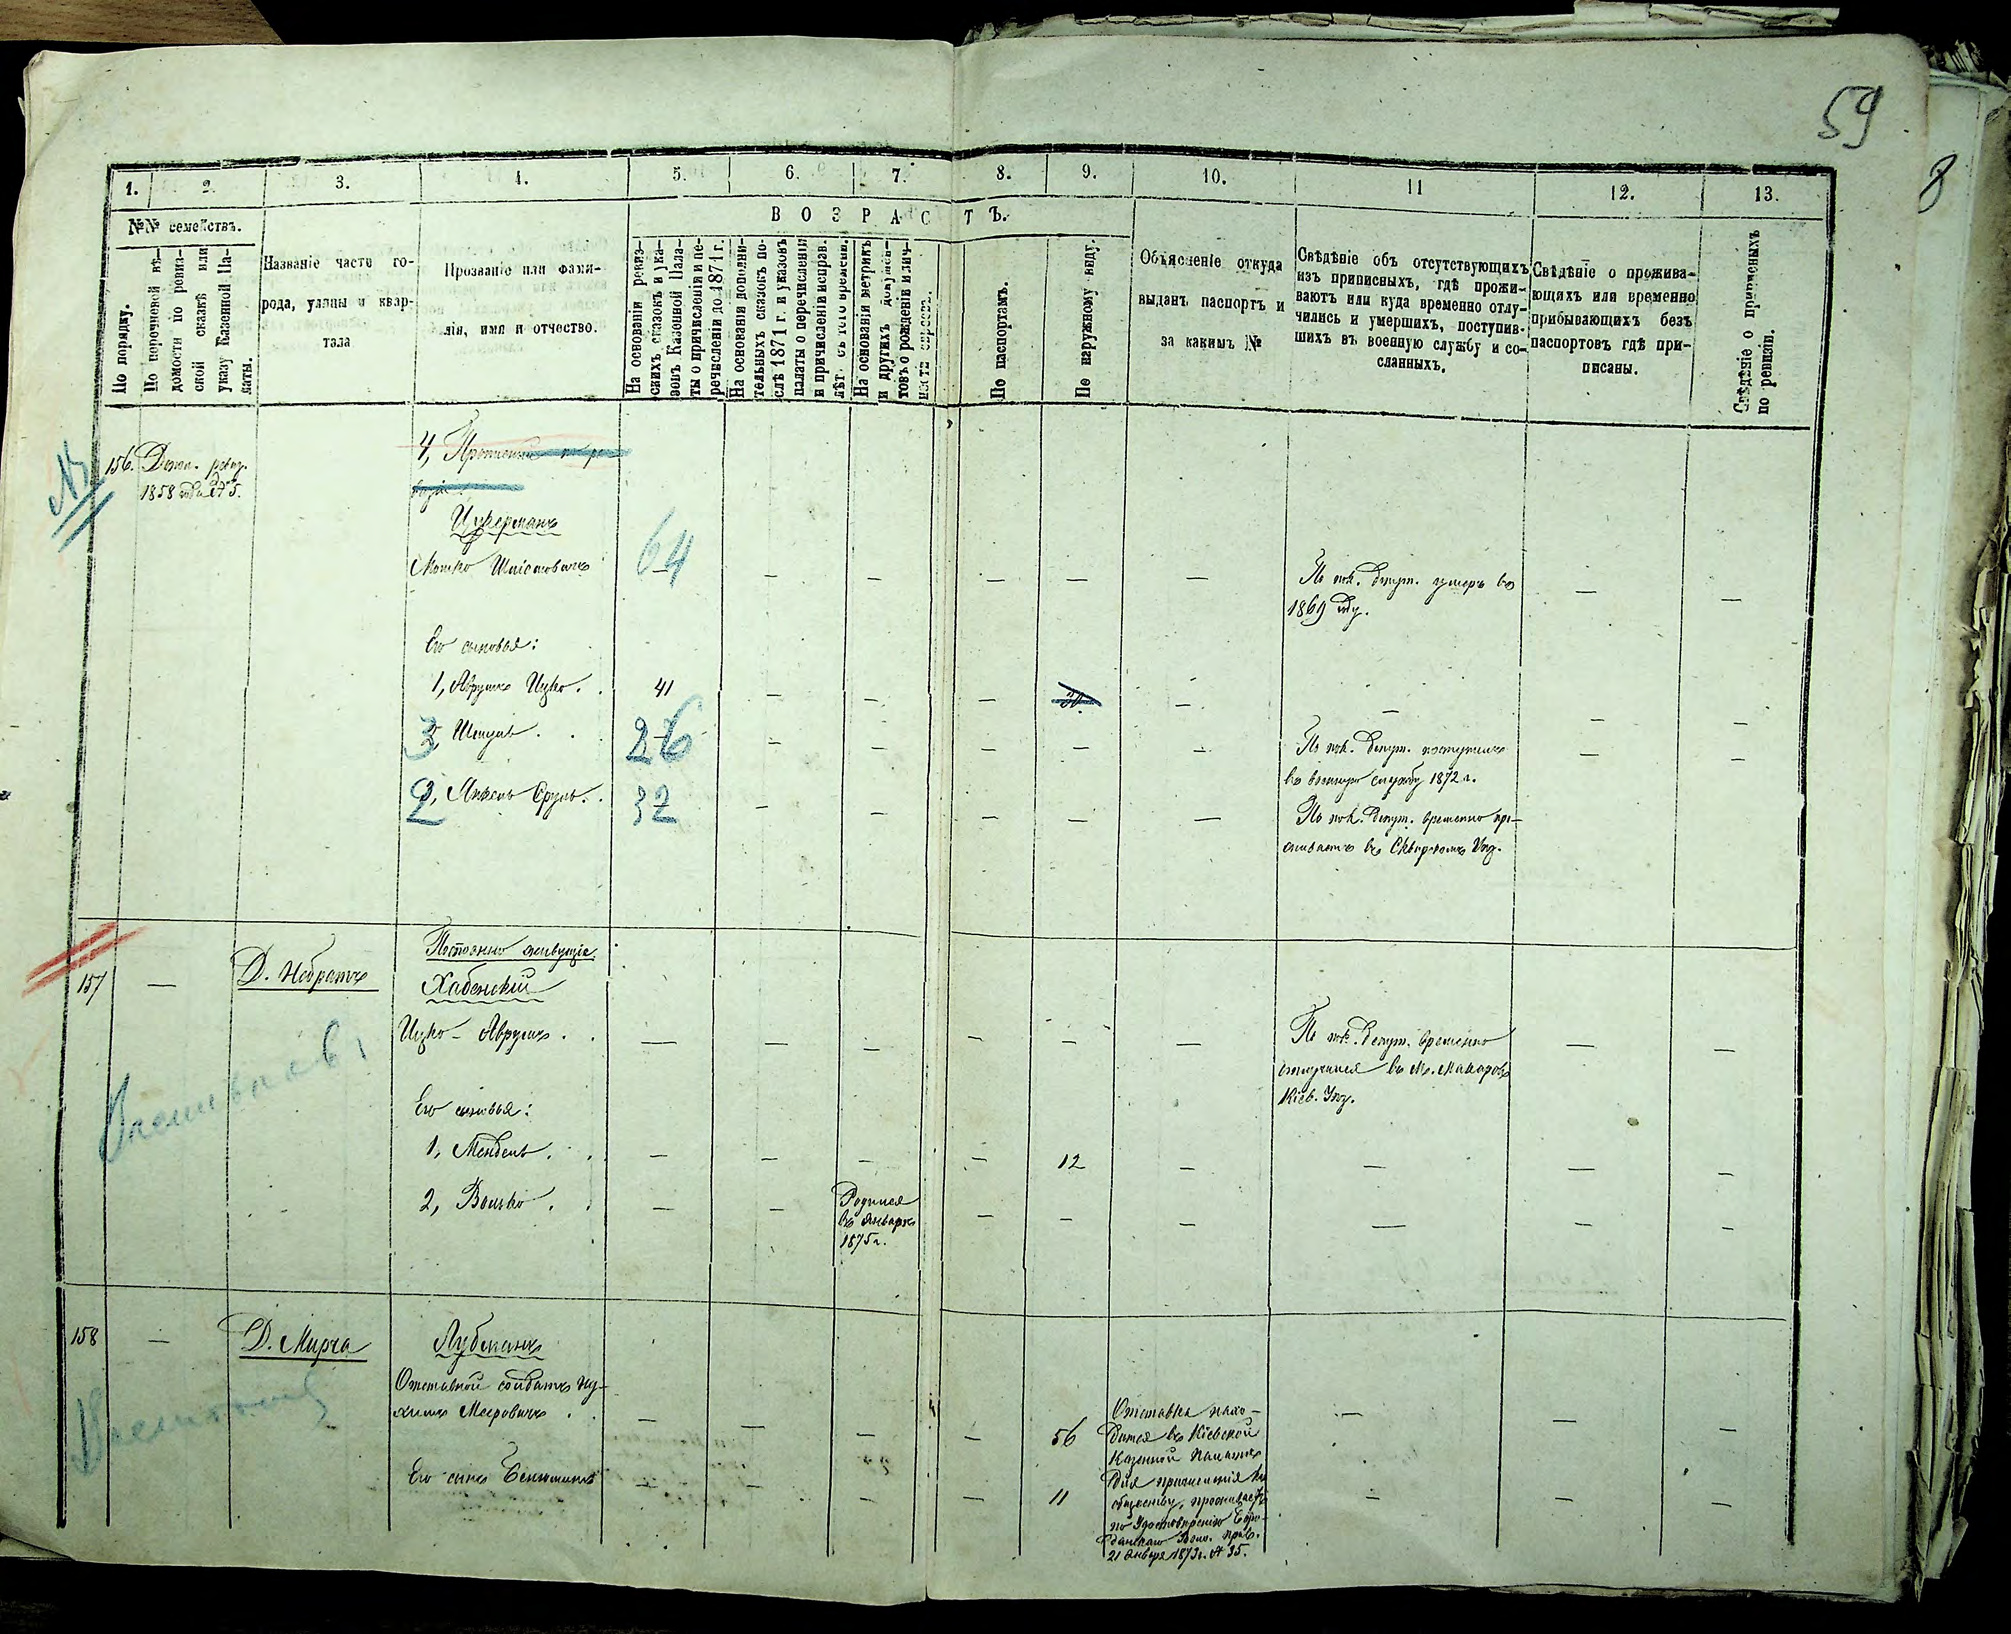 59
8
1. 2. 3. 4. 5. 6. 7. 8. 9. 10. 11 12. 13.
№№ семействъ.
ВОЗРАСТЪ.
По порядку.
По порочной вѣ-
домости по ревиз-
ской сказкѣ или
указу Казенной Па-
латы.
Названіе части го-
рода, улицы и квар-
тала
Прозваніе или фами-
лія, имя и отчество.
На основаніи ревиз-
скихъ сказокъ и ука-
зовъ Казенной Пала-
ты о причисленіи и пе-
речисленіи до 1871 г.
На основаніи дополни-
тельныхъ сказокъ по-
слѣ 1871 г. и указовъ
палаты о перечисленіи
и причисленіи исправ.
лѣт. съ того времени.
На основаніи метрикъ
и другихъ докумен-
товъ о рожденіи и лич-
По паспортамъ.
По наружному виду.
Объясненіе откуда
выданъ паспортъ и
за какимъ №
Свѣдѣніе объ отсутствующихъ
изъ приписныхъ, гдѣ прожи-
ваютъ или куда временно отлу-
чились и умершихъ, поступив-
шихъ въ военную службу и со-
сланныхъ.
Свѣдѣніе о прожива-
ющихъ или временно
прибывающихъ безъ
паспортовъ гдѣ при-
писаны.
Свѣдѣніе о приписныхъ
по ревизіи.
156. Доп. ревиз.
1858 года № 5.
4,
Цукерманъ
Мошко Шліомовичъ 64 — — — — — По пок. депут. умеръ въ — —
1869 году.
Его сыновья:
1, Аврумъ Ицко . . 41 — — — 30. — — — —
3 Шмуль . . 26 — — — — — По пок. депут. поступилъ — —
въ военную службу 1872 г.
2, Янкель Сруль . . 32 — — — — — По пок. депут. временно про-
живаетъ въ Сквирскомъ Уѣз.
Постоянно живущіе.
157 — Д. Небратъ Хабенскій
Ицко - Аврумъ . . — — — — — — По пок. депут. временно — —
отлучился въ м. Макаровъ
Кіев. Уѣз.
Его сыновья:
1, Мендель . . — — — — 12 — — — —
2, Волько . . — — Родился — — — — — —
въ январѣ
1875 г.
158 — Д. Мирча Лубманъ
Отставной солдатъ Ну-
химъ Мееровичъ . . — — — — 56 Отставка нахо- — — —
дится въ Кіевской
Казенной Палатѣ
Его сынъ Беньюминъ — — — — 11 для причисленія къ — — —
обществу, проживаетъ
по Удостовѣренію
Волос. прав.
21 Января 1873 г. № 35.